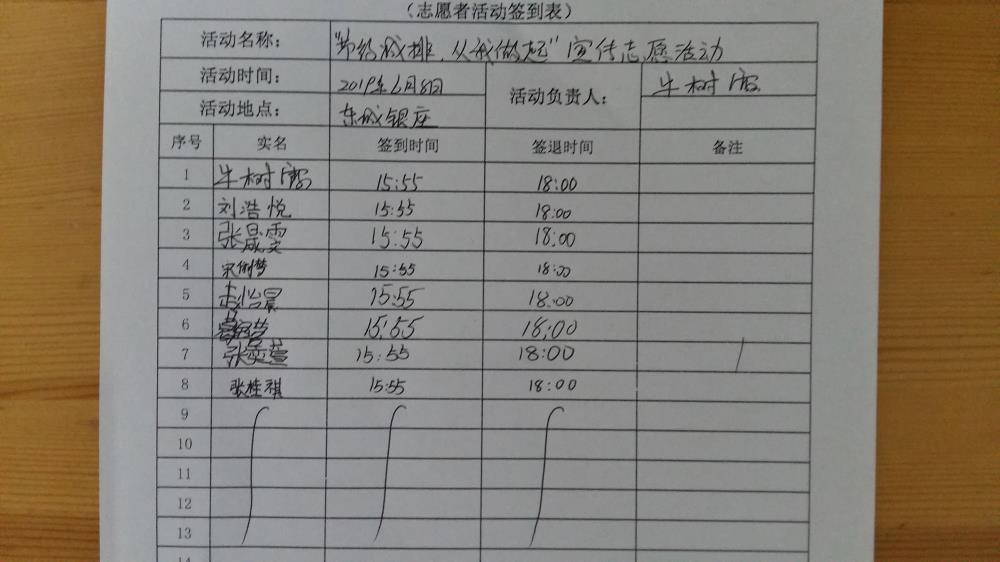 （志愿者活动签到表）
活动名称： "节约减排，从我做起"宣传志愿活动
活动时间： 2019年6月8日 活动负责人： 牛树
活动地点： 东城银座
序号 实名 签到时间 签退时间 备注
1 牛树 15:55 18:00
2 刘浩悦 15:55 18:00
3 张晟雯 15:55 18:00
4 宋俐梦 15:55 18:00
5 赵怡晨 15:55 18:00
6 15:55 18:00
7 张奕萱 15:55 18:00
8 张桂祺 15:55 18:00
9
10
11
12
13